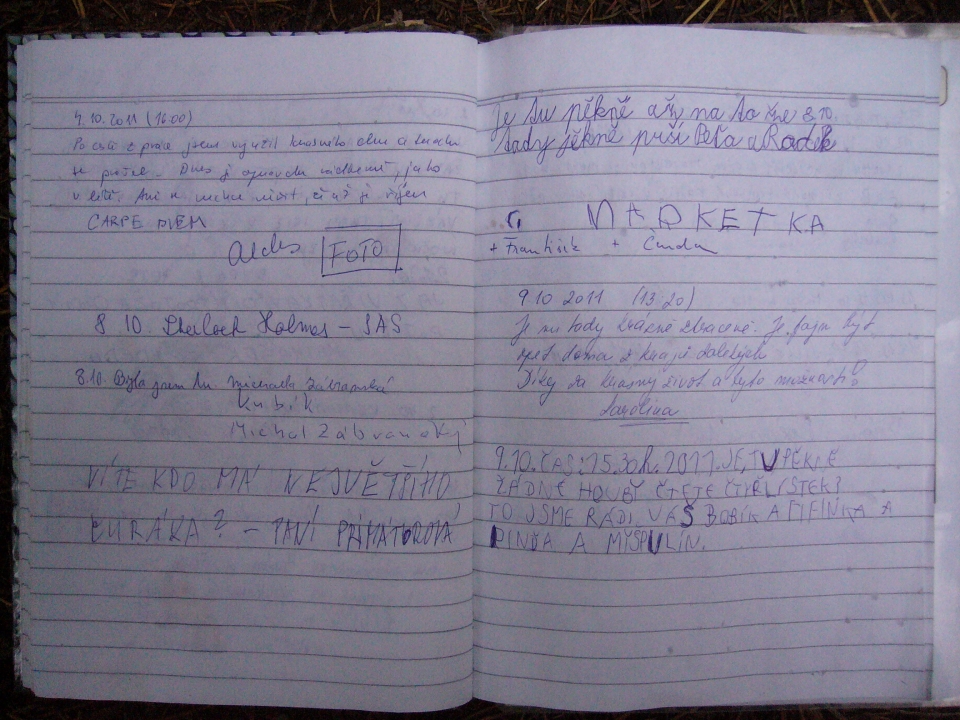 4.10.2011 (16.00)
Po cestě z práce jsem využil krásného dne a
se . Dnes je opravdu nádherně, jako
v létě. Ani se nechce věřit, že už je říjen
CARPE DIEM
FOTO
8 10. Sherlock Holmes - SAS
8.10. Byla jsem tu. Michaela Zábranská
Kubík
Michal Zábranský
VÍTE KDO MÁ NEJVĚTŠÍHO
BURÁKA? - PANÍ PRIMÁTOROVÁ
je tu pěkně až na to že 8.10.
tady jěkně prší Péťa a Radek
MARKÉTKA
+ František + Čenda
9.10 2011 (13.20)
Je mi tady krásně ztraceně. Je fajn být
zpet doma z krajů dalekých
Díky za krásný život a tyto možnosti!
Karolina
9.10. ČAS: 15.30h. 2011. JE TU PĚKNĚ
ŽÁDNÉ HOUBY ČTETE ČTYŘLÍSTEK?
TO JSME RÁDI. VÁŠ BOBÍK A FIFINKA A
PINĎA A MYŠPULÍN.